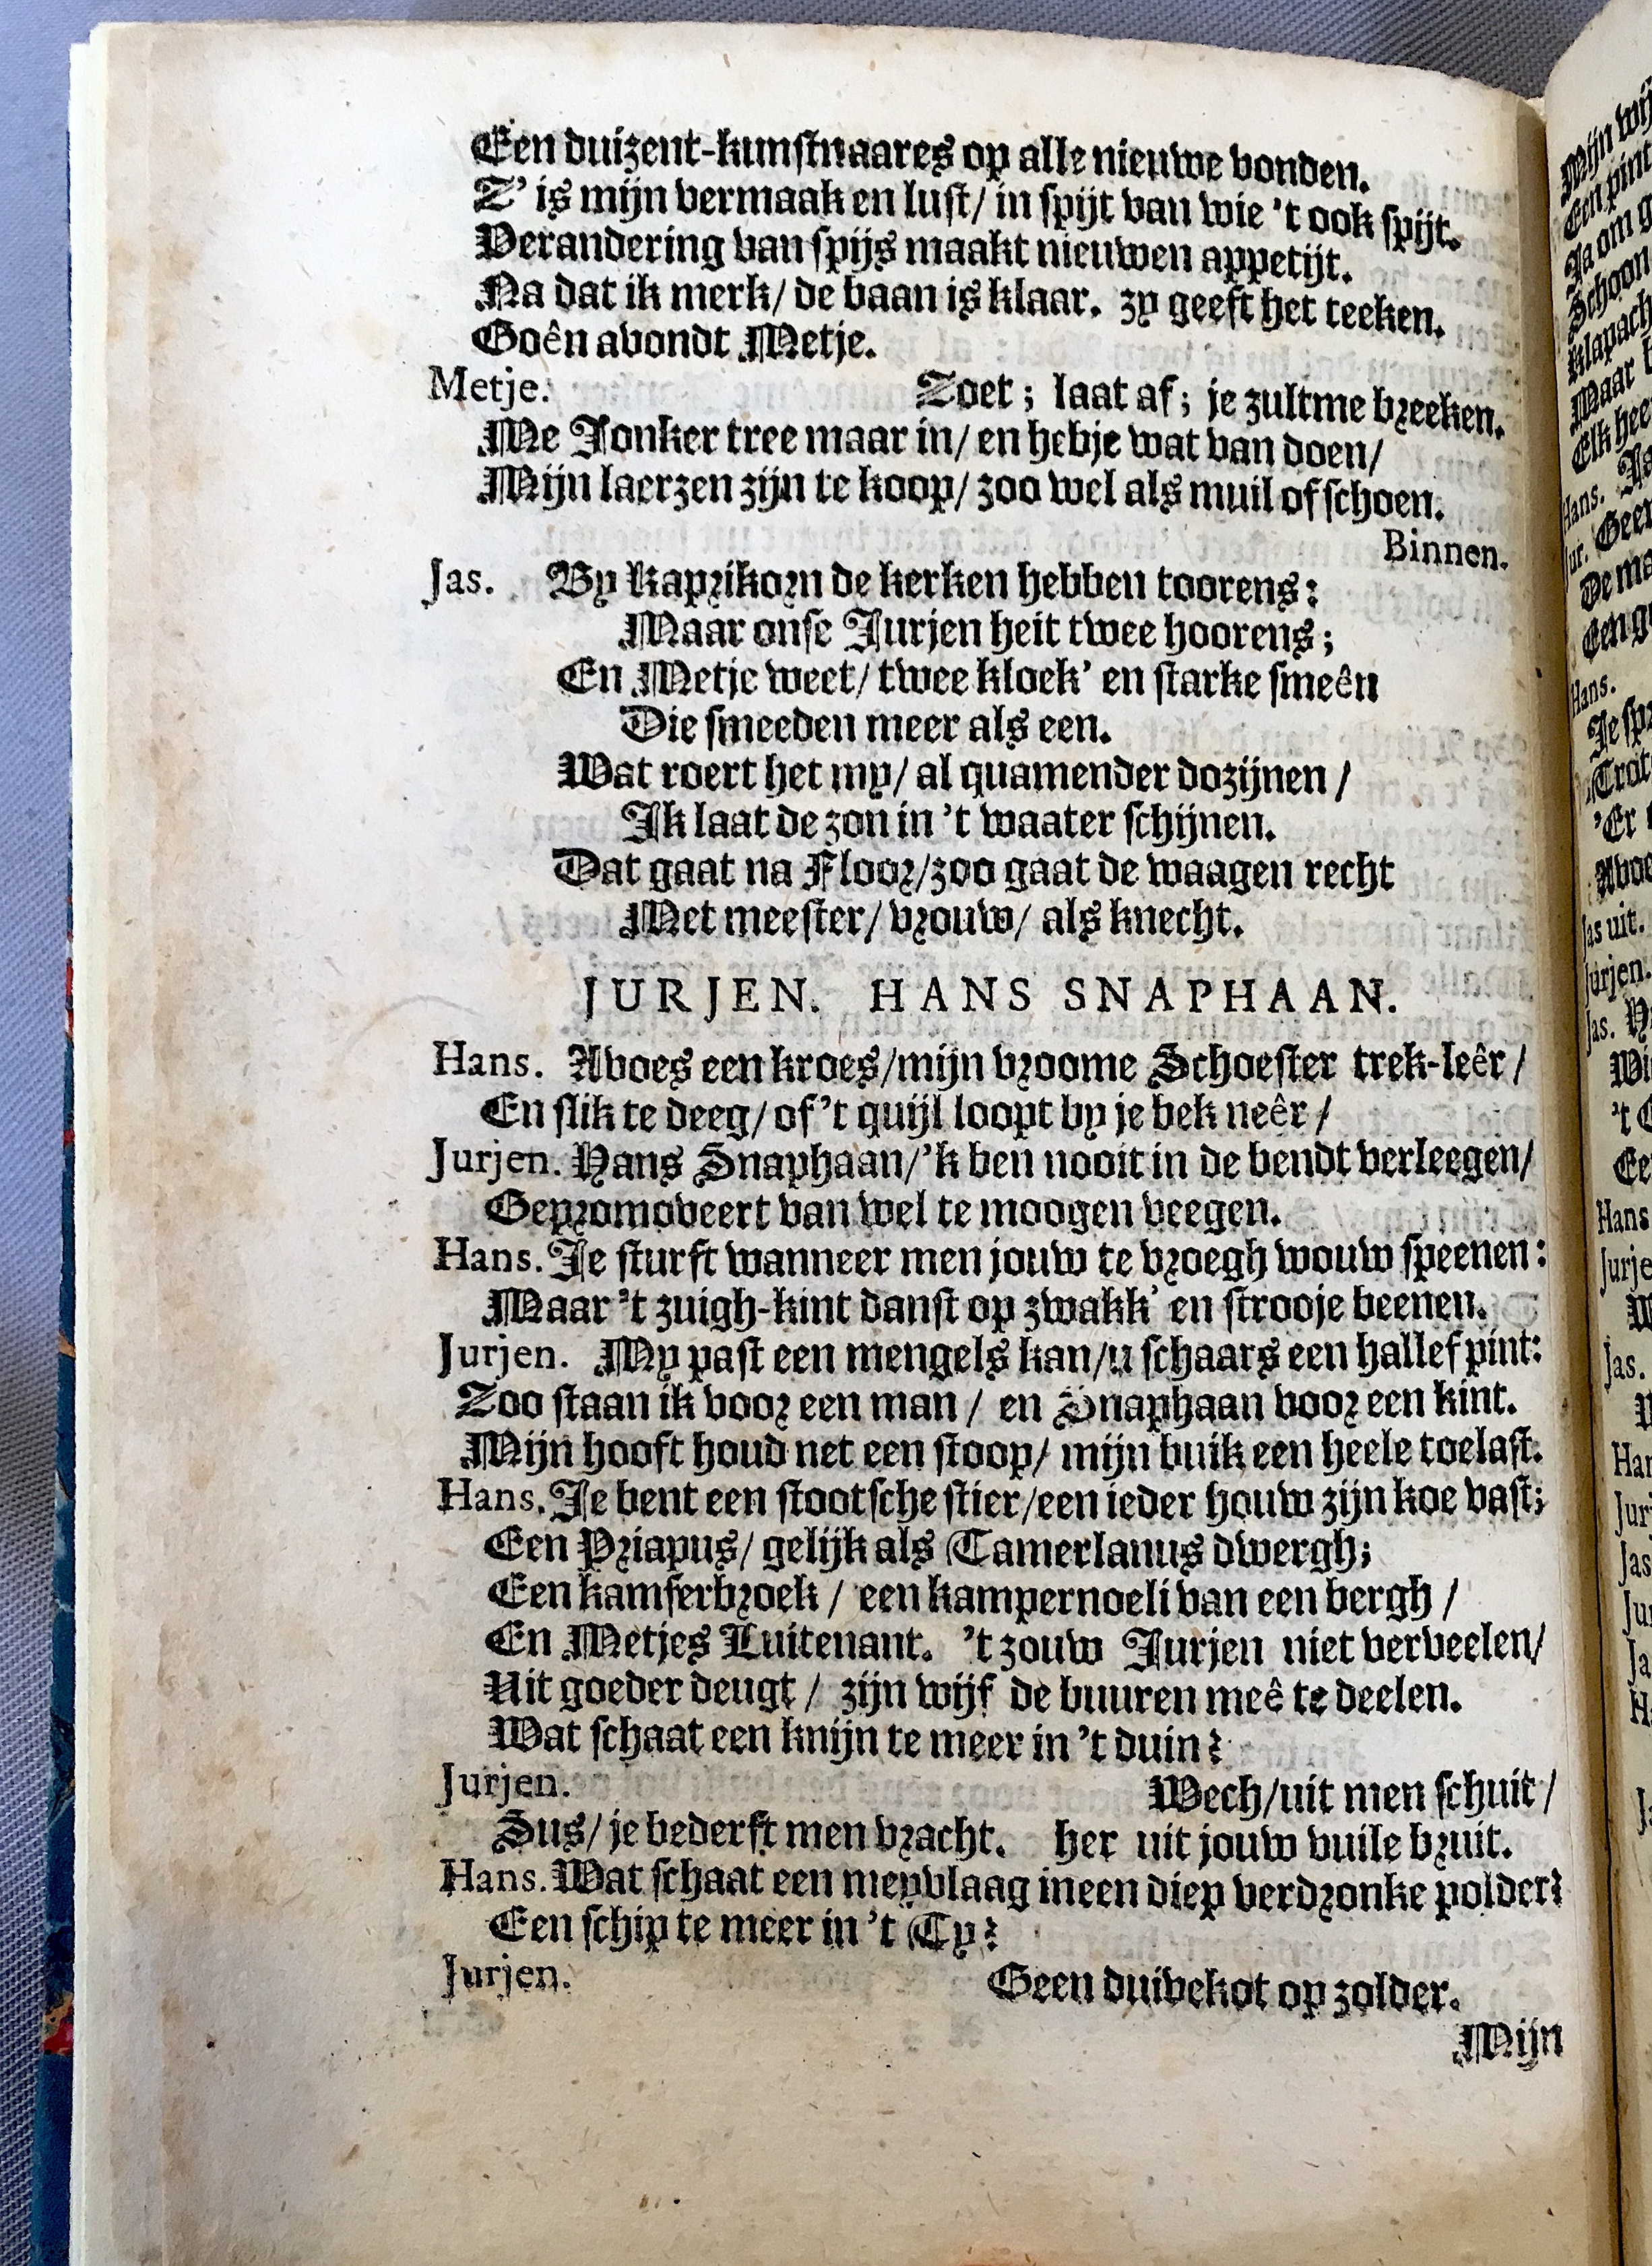 Een duizent-kunstnaares op alle nieuwe vonden.
T' is mijn vermaak en lust/ in spijt van wie 't ook spijt.
Verandering van spijs maakt nieuwen appetijt.
Na dat ik merk/ de baan is klaar. zy geeft het teeken.
Goên avondt Metje.
Metje. Zoet; laat af; je zultme breeken.
Me Jonker tree maar in/ en hebje wat van doen/
Mijn laerzen zijn te koop/ zoo wel als muil of schoen.
Binnen.
Jas. By Kaprikorn de kerken hebben toorens:
Maar onse Jurjen heit twee hoorens;
En Metje weet/ twee kloek' en starke smeên
Die smeeden meer als een.
Wat roert het my/ al quamender dozijnen/
Ik laat de zon in 't waater schijnen.
Dat gaat na Floor/ zoo gaat de waagen recht
Met meester/ vrouw/ als knecht.
JURJEN. HANS SNAPHAAN.
Hans. Avoes een kroes/ mijn vroome Schoester trek-leêr/
En slik te deeg/ of 't quijl loopt by je bek neêr/
Jurjen. Hans Snaphaan/ 'k ben nooit in de bendt verleegen/
Gepromoveert van wel te moogen veegen.
Hans. Je sturft wanneer men jouw te vroegh wouw speenen:
Maar 't zuigh-kint danst op zwakk' en strooje beenen.
Jurjen. My past een mengels kan/ u schaars een hallef pint:
Zoo staan ik voor een man/ en Snaphaan voor een kint.
Mijn hooft houd net een stoop/ mijn buik een heele toelast.
Hans. Je bent een stootsche stier/ een ieder houw zijn koe vast;
Een Priapus/ gelijk als Tamerlanus dwergh;
Een kamferbroek/ een kampernoeli van een bergh/
En Metjes Luitenant. 't zouw Jurjen niet verveelen/
Uit goeder deugt/ zijn wijf de buuren meê te deelen.
Wat schaat een knijn te meer in 't duin?
Jurjen. Wech/ uit men schuit/
Sus/ je bederft men vracht. her uit jouw vuile bruit.
Hans. Wat schaat een meyvlaag in een diep verdronke polder?
Een schip te meer in 't Ty?
Jurjen. Geen duivekot op zolder.
Mijn